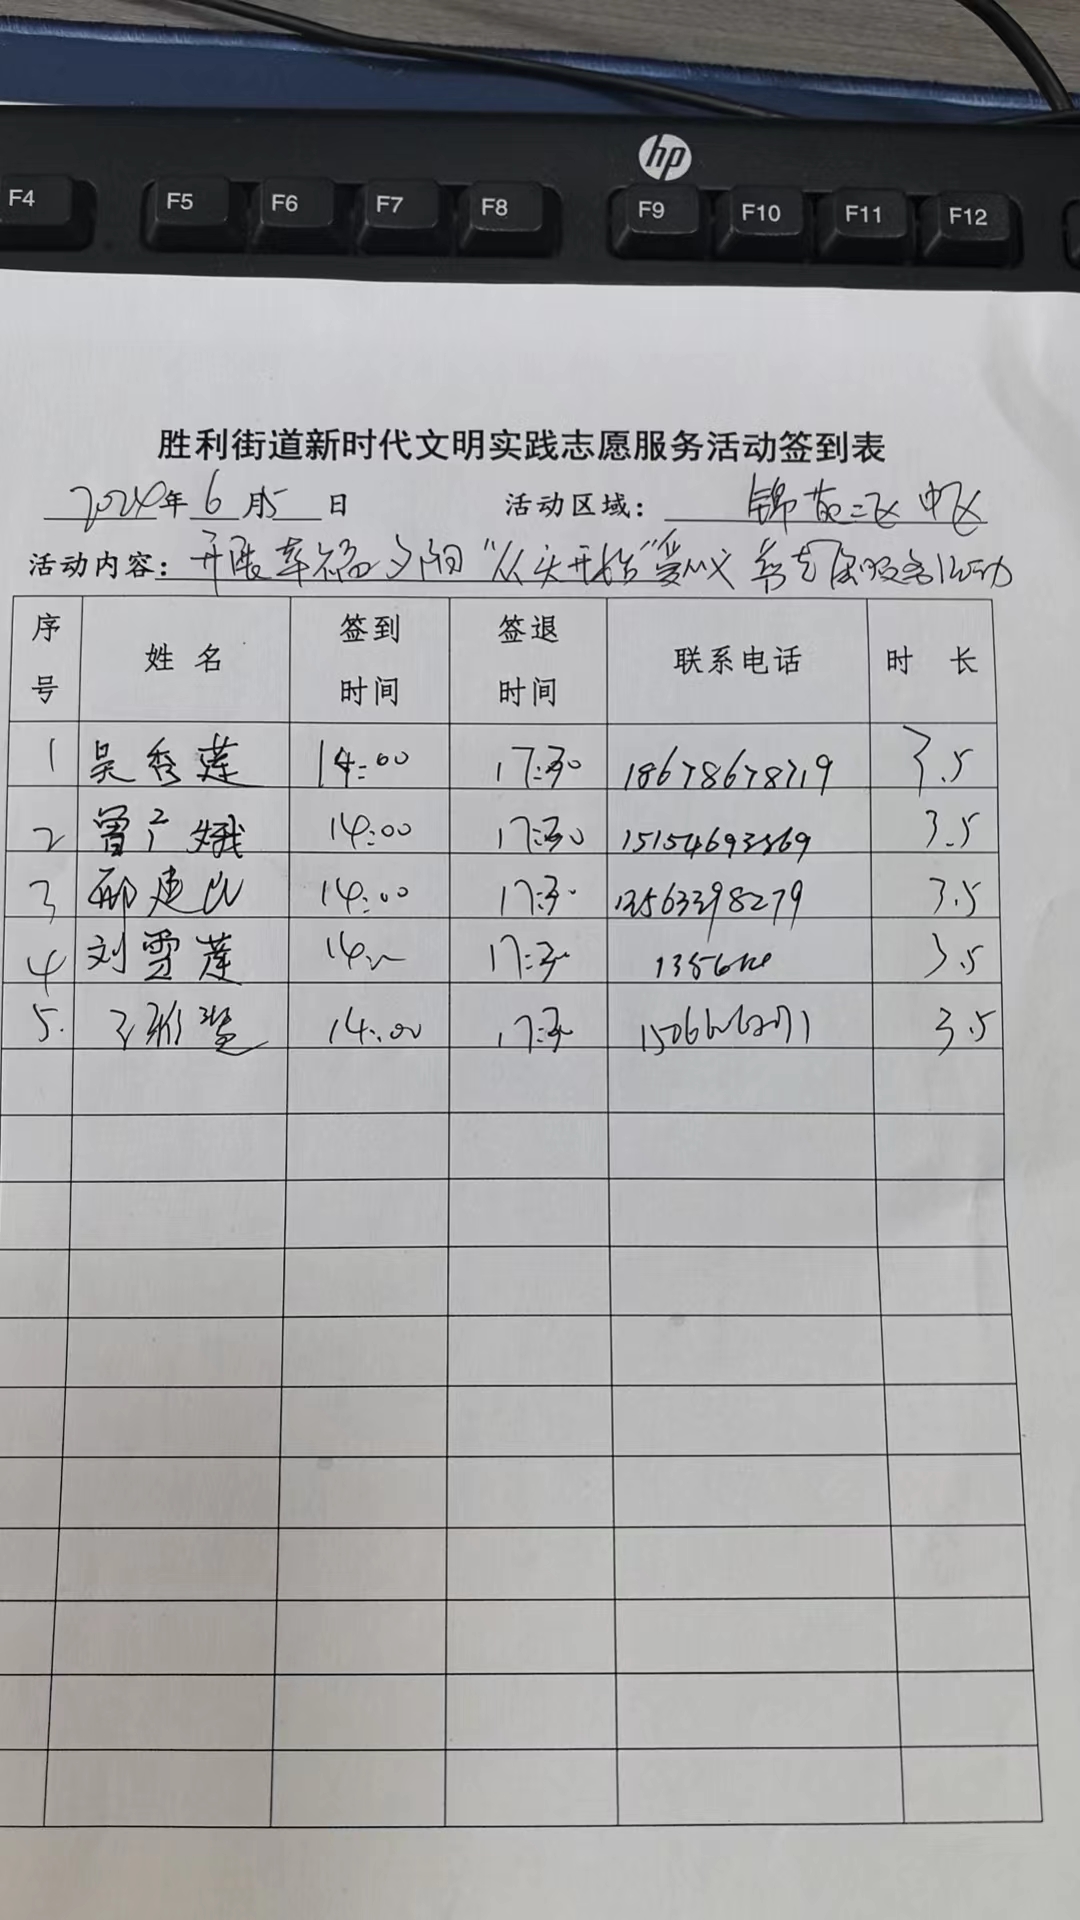 hp
F4 F5 F6 F7 F8 F9 F10 F11 F12
胜利街道新时代文明实践志愿服务活动签到表
2024年 6 月 5 日 活动区域: 锦苑二区 中区
活动内容: 开展幸福夕阳“从头开始”爱心义剪志愿服务活动
序号 姓名 签到时间 签退时间 联系电话 时长
1 吴秀莲 14:00 17:30 18678678719 3.5
2 曾广娥 14:00 17:30 15154693869 3.5
3 邴建 14:00 17:30 13563398279 3.5
4 刘雪莲 14 17:30 3.5
5. 14:00 17:30 3.5